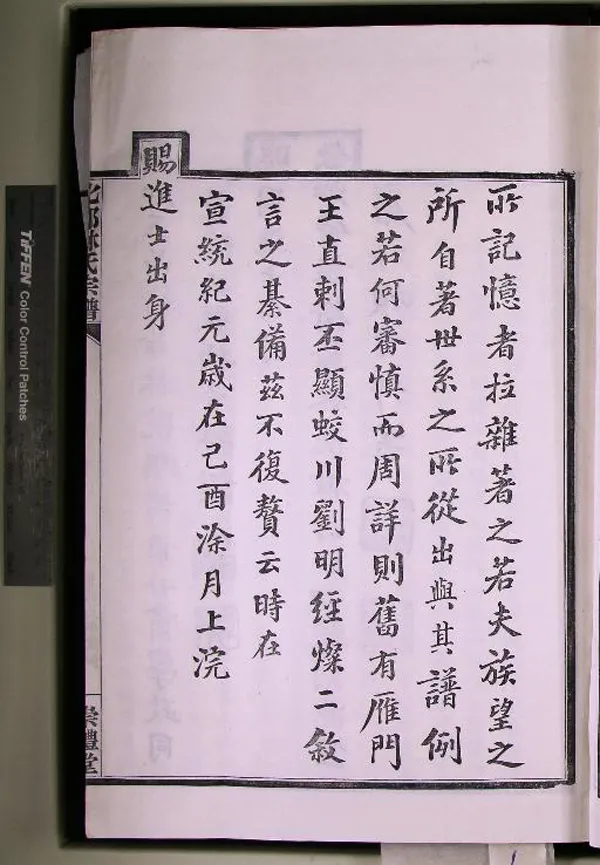 所記憶者拉雜著之若夫族望之
所自著世系之所從出與其譜例
之若何審慎而周詳則舊有雁門
王直刺丕顯蛟川劉明經燦二敘
言之綦備茲不復贅云時在
宣統紀元歲在己酉涂月上浣
賜進士出身
氏宗譜
崇禮堂
TIFFEN Color Control Patches